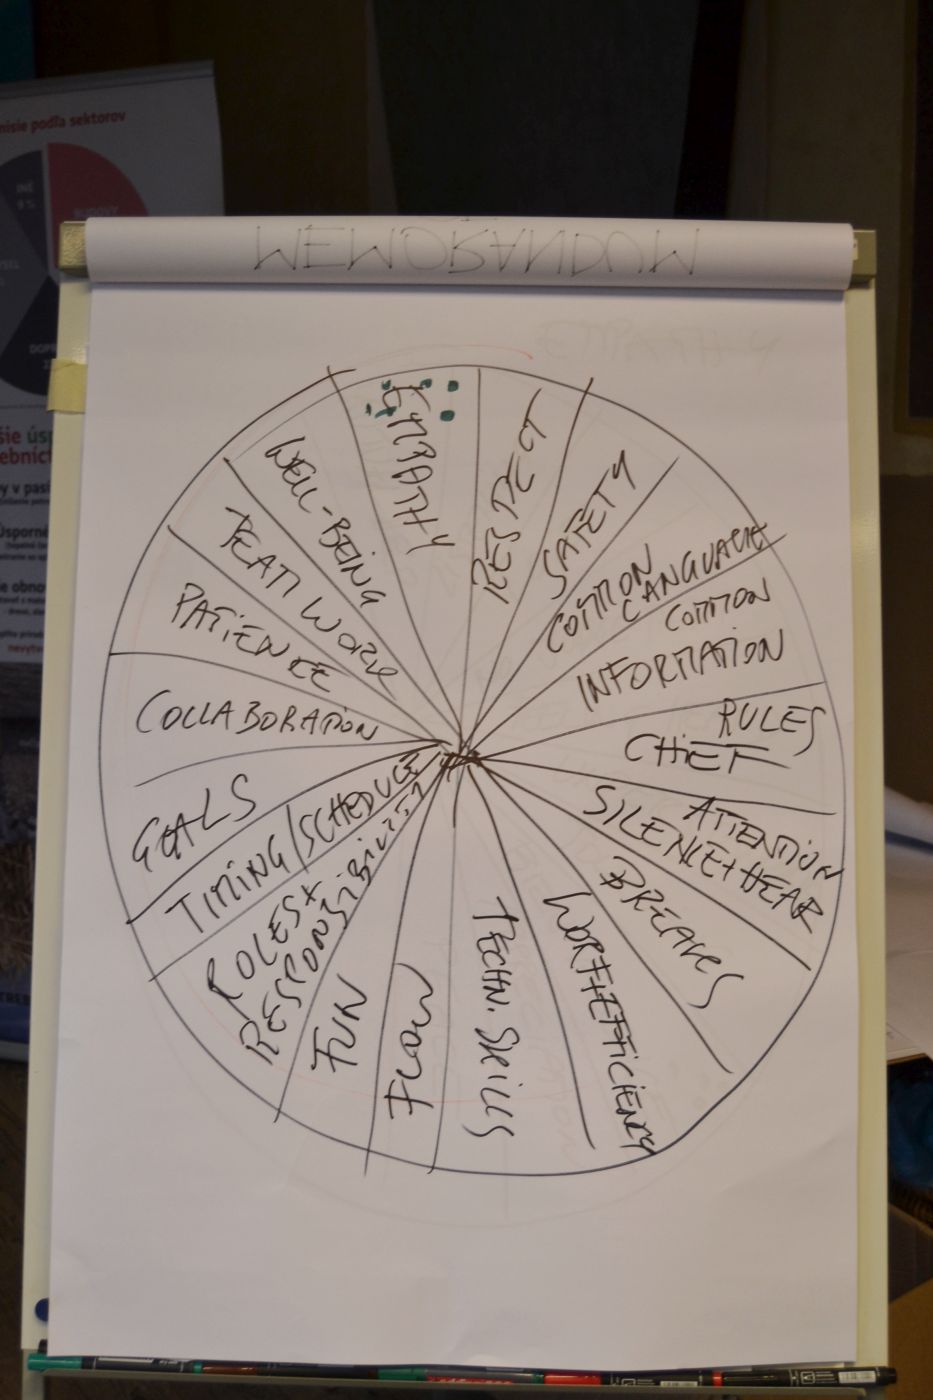 nisie podľa sektorov
INÉ
9 %
MEMORANDUM
EMPATHY
RESPECT
SAFETY
COMMON
LANGUAGE
COMMON
INFORMATION
RULES
CHIEF
ATTENTION
SILENCE + HEAR
BREAKS
WORK EFFICIENCY
TECHN. SKILLS
FLOW
FUN
ROLES +
RESPONSIBILITY
TIMING/SCHEDULE
GOALS
COLLABORATION
PATIENCE
TEAM WORK
WELL-BEING